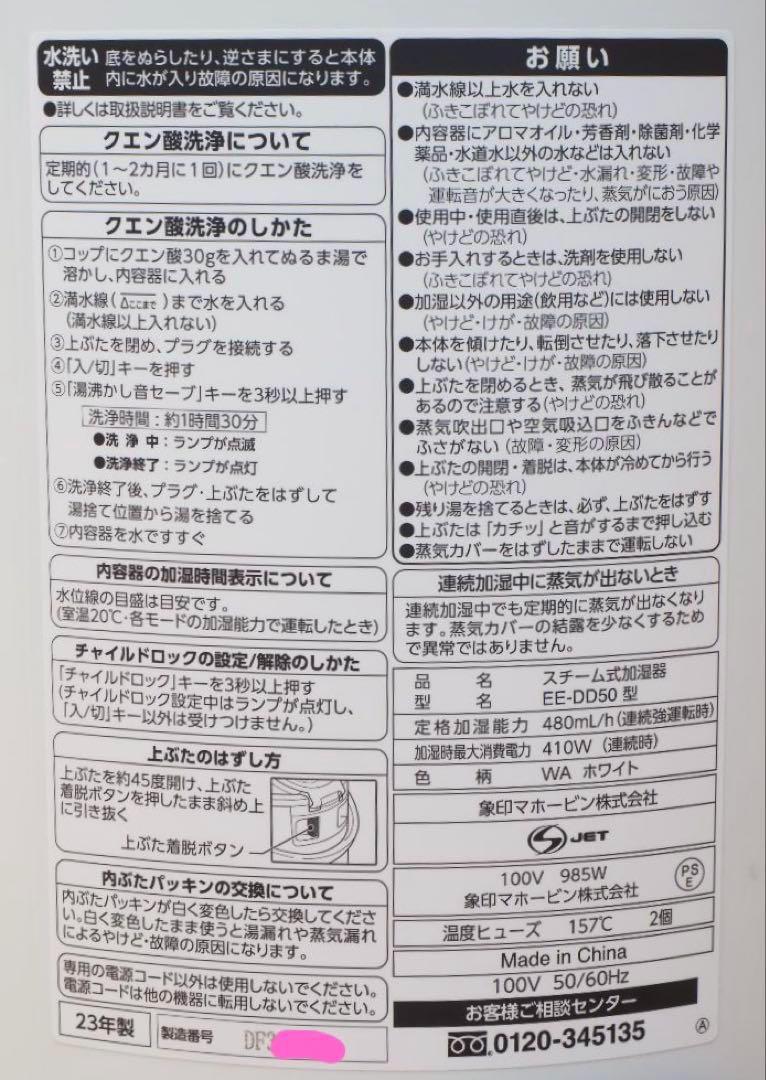 水洗い
禁止
底をぬらしたり、逆さまにすると本体
内に水が入り故障の原因になります。
●詳しくは取扱説明書をご覧ください。
クエン酸洗浄について
定期的(1〜2カ月に1回)にクエン酸洗浄を
してください。
クエン酸洗浄のしかた
①コップにクエン酸30gを入れてぬるま湯で
溶かし、内容器に入れる
②満水線(△ここまで)まで水を入れる
(満水線以上入れない)
③上ぶたを閉め、プラグを接続する
④「入/切」キーを押す
⑤「湯沸かし音セーブ」キーを3秒以上押す
洗浄時間:約1時間30分
●洗浄中:ランプが点滅
●洗浄終了:ランプが点灯
⑥洗浄終了後、プラグ・上ぶたをはずして
湯捨て位置から湯を捨てる
⑦内容器を水ですすぐ
内容器の加湿時間表示について
水位線の目盛は目安です。
(室温20℃・各モードの加湿能力で運転したとき)
チャイルドロックの設定/解除のしかた
「チャイルドロック」キーを3秒以上押す
(チャイルドロック設定中はランプが点灯し、
「入/切」キー以外は受けつけません。)
上ぶたのはずし方
上ぶたを約45度開け、上ぶた
着脱ボタンを押したまま斜め上
に引き抜く
上ぶた着脱ボタン
内ぶたパッキンの交換について
内ぶたパッキンが白く変色したら交換してくださ
い。白く変色したまま使うと湯漏れや蒸気漏れ
によるやけど・故障の原因になります。
専用の電源コード以外は使用しないでください。
電源コードは他の機器に転用しないでください。
23年製
製造番号 DF3
お願い
●満水線以上水を入れない
(ふきこぼれてやけどの恐れ)
●内容器にアロマオイル・芳香剤・除菌剤・化学
薬品・水道水以外の水などは入れない
(ふきこぼれてやけど・水漏れ・変形・故障や
運転音が大きくなったり、蒸気がにおう原因)
●使用中・使用直後は、上ぶたの開閉をしない
(やけどの恐れ)
●お手入れするときは、洗剤を使用しない
(ふきこぼれてやけどの恐れ)
●加湿以外の用途(飲用など)には使用しない
(やけど・けが・故障の原因)
●本体を傾けたり、転倒させたり、落下させたり
しない(やけど・けが・故障の原因)
●上ぶたを閉めるとき、蒸気が飛び散ることが
あるので注意する(やけどの恐れ)
●蒸気吹出口や空気吸込口をふきんなどで
ふさがない(故障・変形の原因)
●上ぶたの開閉・着脱は、本体が冷めてから行う
(やけどの恐れ)
●残り湯を捨てるときは、必ず、上ぶたをはずす
●上ぶたは「カチッ」と音がするまで押し込む
●蒸気カバーをはずしたままで運転しない
連続加湿中に蒸気が出ないとき
連続加湿中でも定期的に蒸気が出なくなり
ます。蒸気カバーの結露を少なくするため
で異常ではありません。
品名 スチーム式加湿器
型名 EE-DD50 型
定格加湿能力 480mL/h(連続強運転時)
加湿時最大消費電力 410W (連続時)
色柄 WA ホワイト
象印マホービン株式会社
JET
100V 985W
象印マホービン株式会社
PS
E
温度ヒューズ 157℃ 2個
Made in China
100V 50/60Hz
お客様ご相談センター
0120-345135
Ⓐ